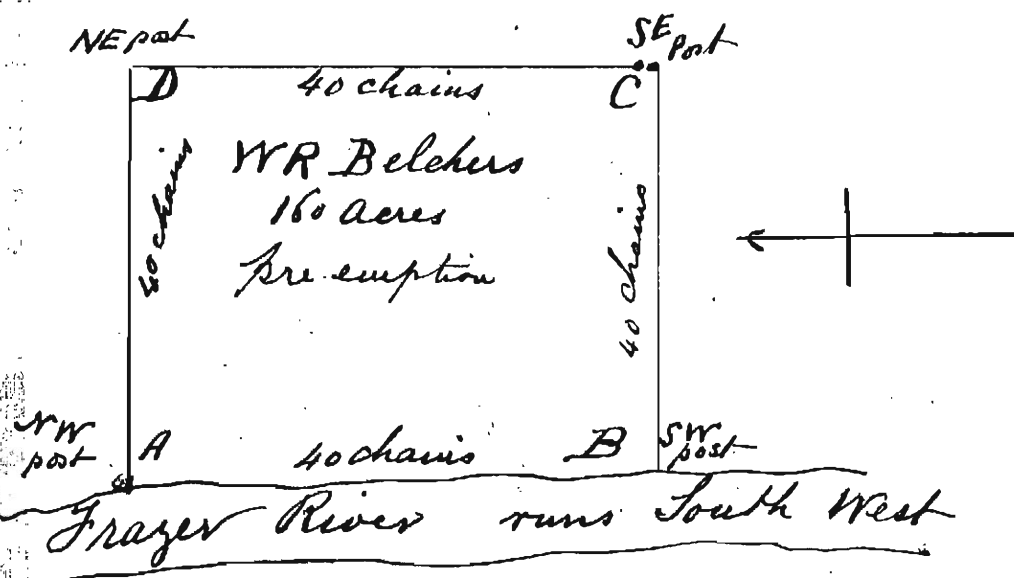 NE post
SE Post
D
40 chains
C
40 chains
WR Belchers
160 acres
pre-emption
40 chains
NW post
A
40 chains
B
SW post
Frazer River runs South West